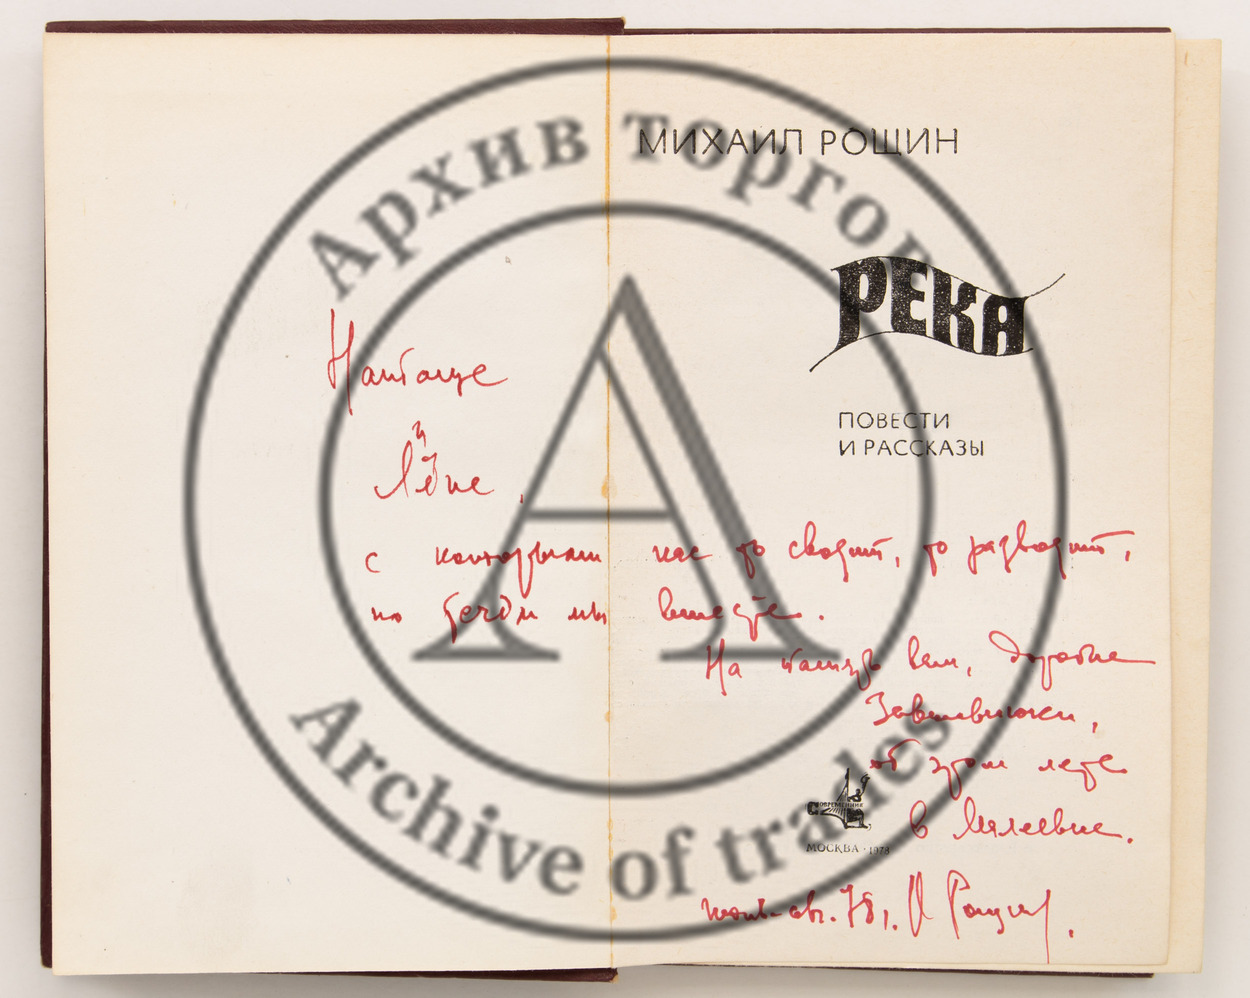 Архив торгов
МИХАИЛ РОЩИН
РЕКА
ПОВЕСТИ
И РАССКАЗЫ
Наташе
и
Лёне,
с которыми нас то сводит, то разводит,
но будем мы вместе.
На память вам, дорогие
об этом лете
в
СОВРЕМЕННИК
МОСКВА · 1978
авг. 78 г. М Рощин.
Archive of trades